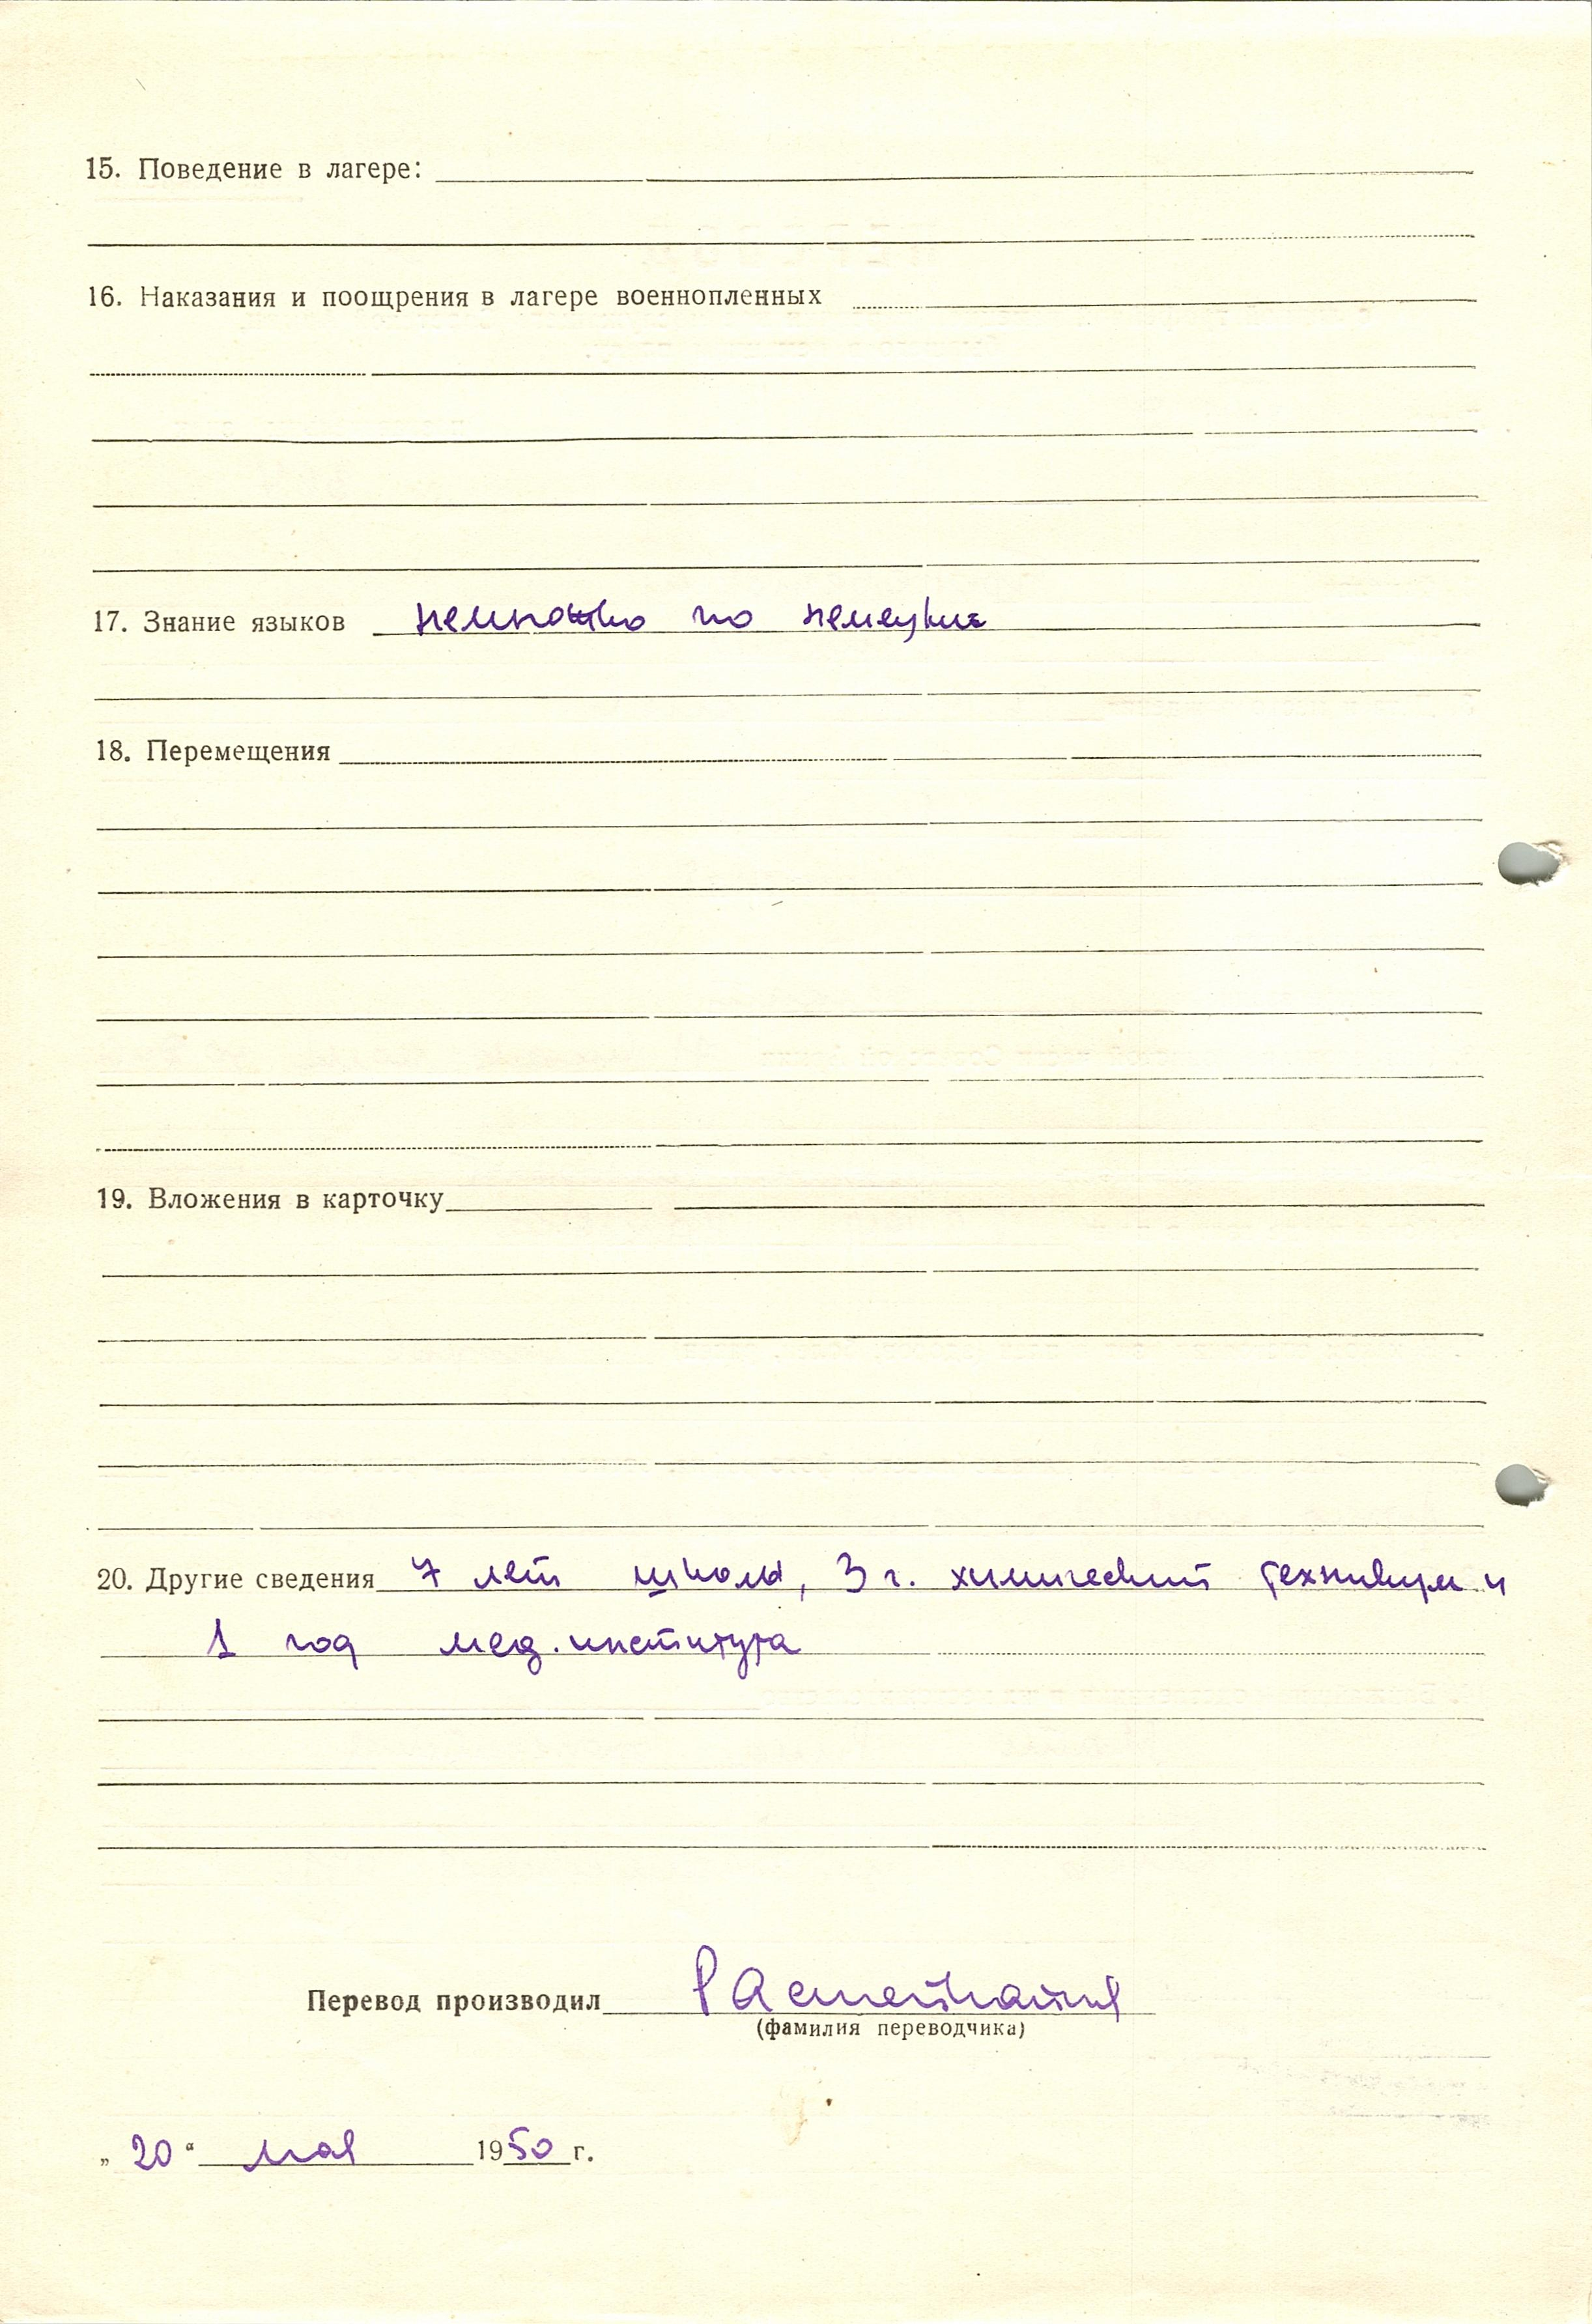 15. Поведение в лагере:
16. Наказания и поощрения в лагере военнопленных
17. Знание языков немножко по немецки
18. Перемещения
19. Вложения в карточку
20. Другие сведения 7 лет школы, 3 г. химический техникум и
1 год мед. института
Перевод производил
(фамилия переводчика)
„ 20 “ мая 1950 г.